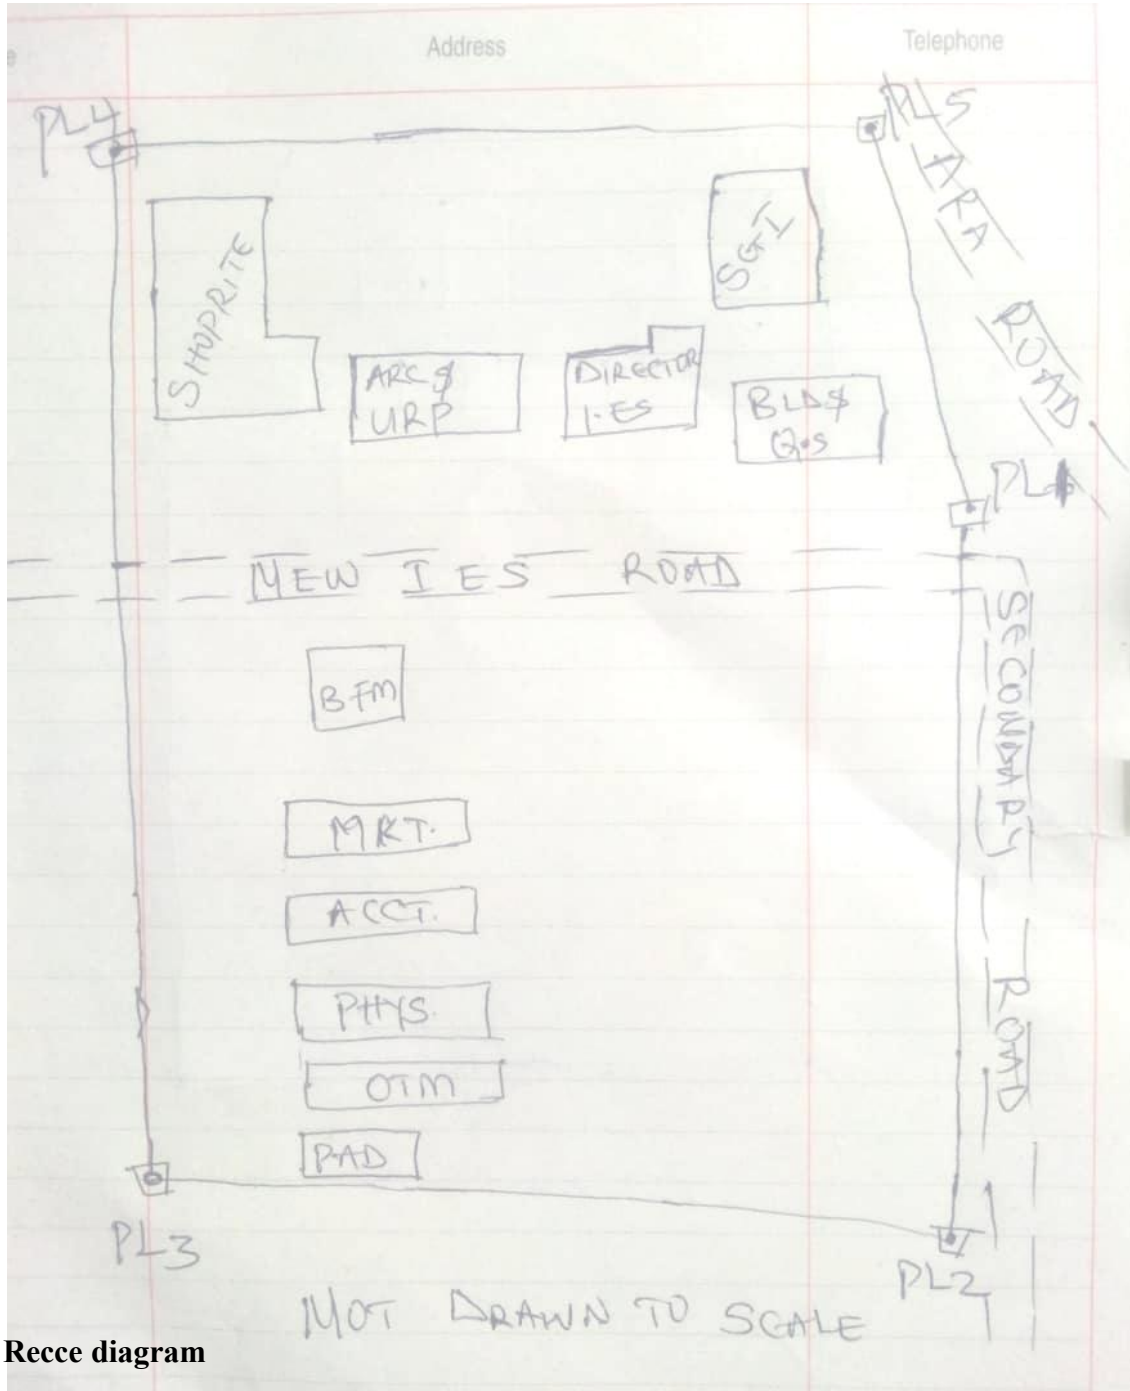 Address
Telephone
PL4
PL5
LARA ROAD
SHOPRITE
SGI
ARC $
URP
DIRECTOR
I.ES
BLD $
Q.S
PL1
NEW IES ROAD
SECONDARY ROAD
BFM
MKT.
ACCT.
PHYS.
OTM
PAD
PL3
PL2
NOT DRAWN TO SCALE
Recce diagram